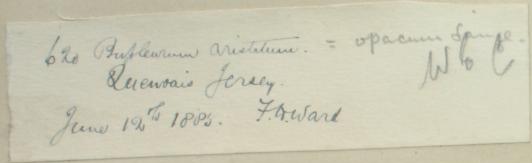 620 Bupleurum aristatum. = opacum
Quenvais Jersey.
June 12th 1885. F.D. Ward